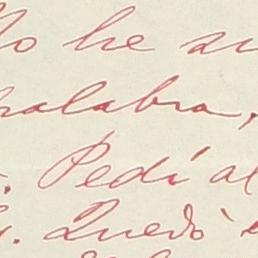 No he
palabra,
. Pedí al
. Quedó